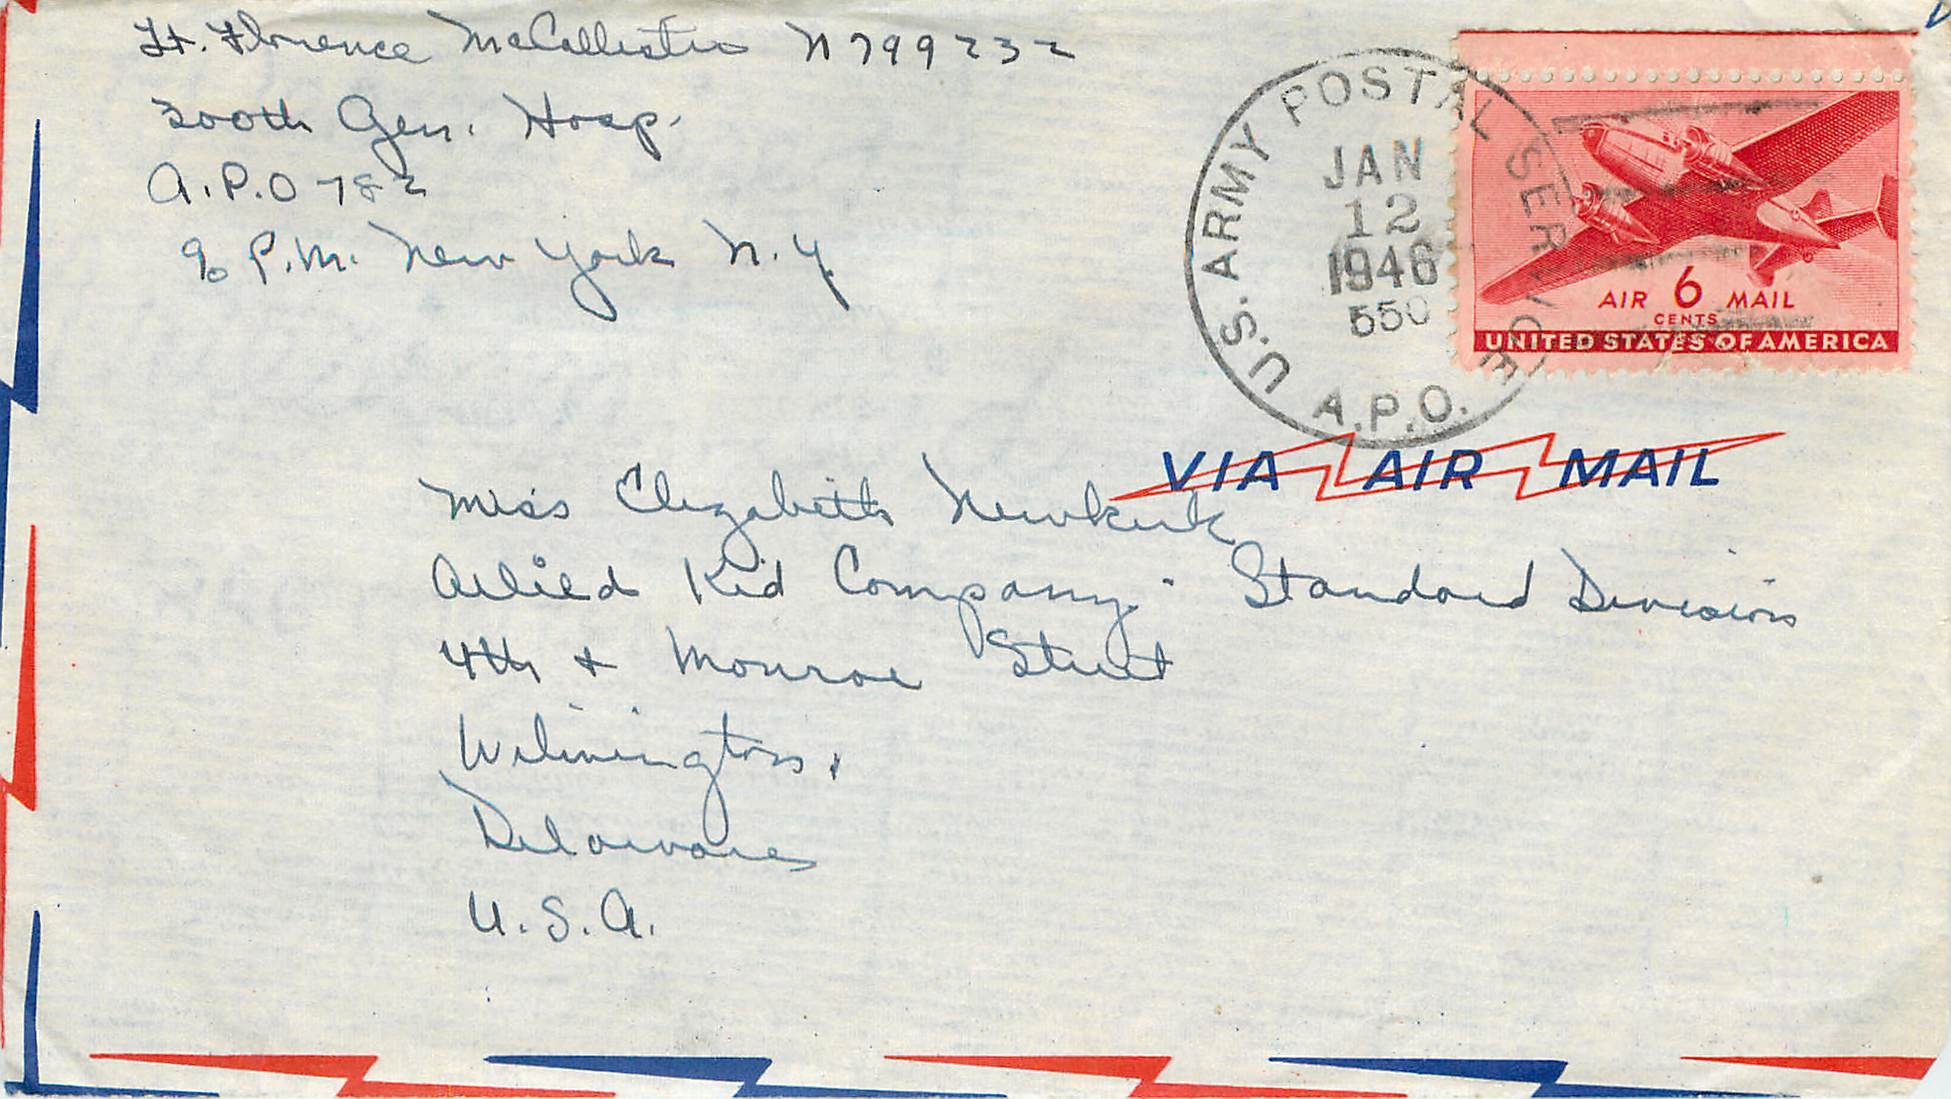 Lt. Florence McCallister N799232
300th Gen. Hosp.
A.P.O 782
c/o P.M. New York N.Y.
U.S. ARMY POSTAL SERVICE
JAN
12
1946
550
A.P.O.
AIR 6 MAIL
CENTS
UNITED STATES OF AMERICA
VIA AIR MAIL
Miss Elizabeth Newkirk
Allied Kid Company - Standard Division
4th & Monroe Street
Wilmington,
Delaware
U.S.A.